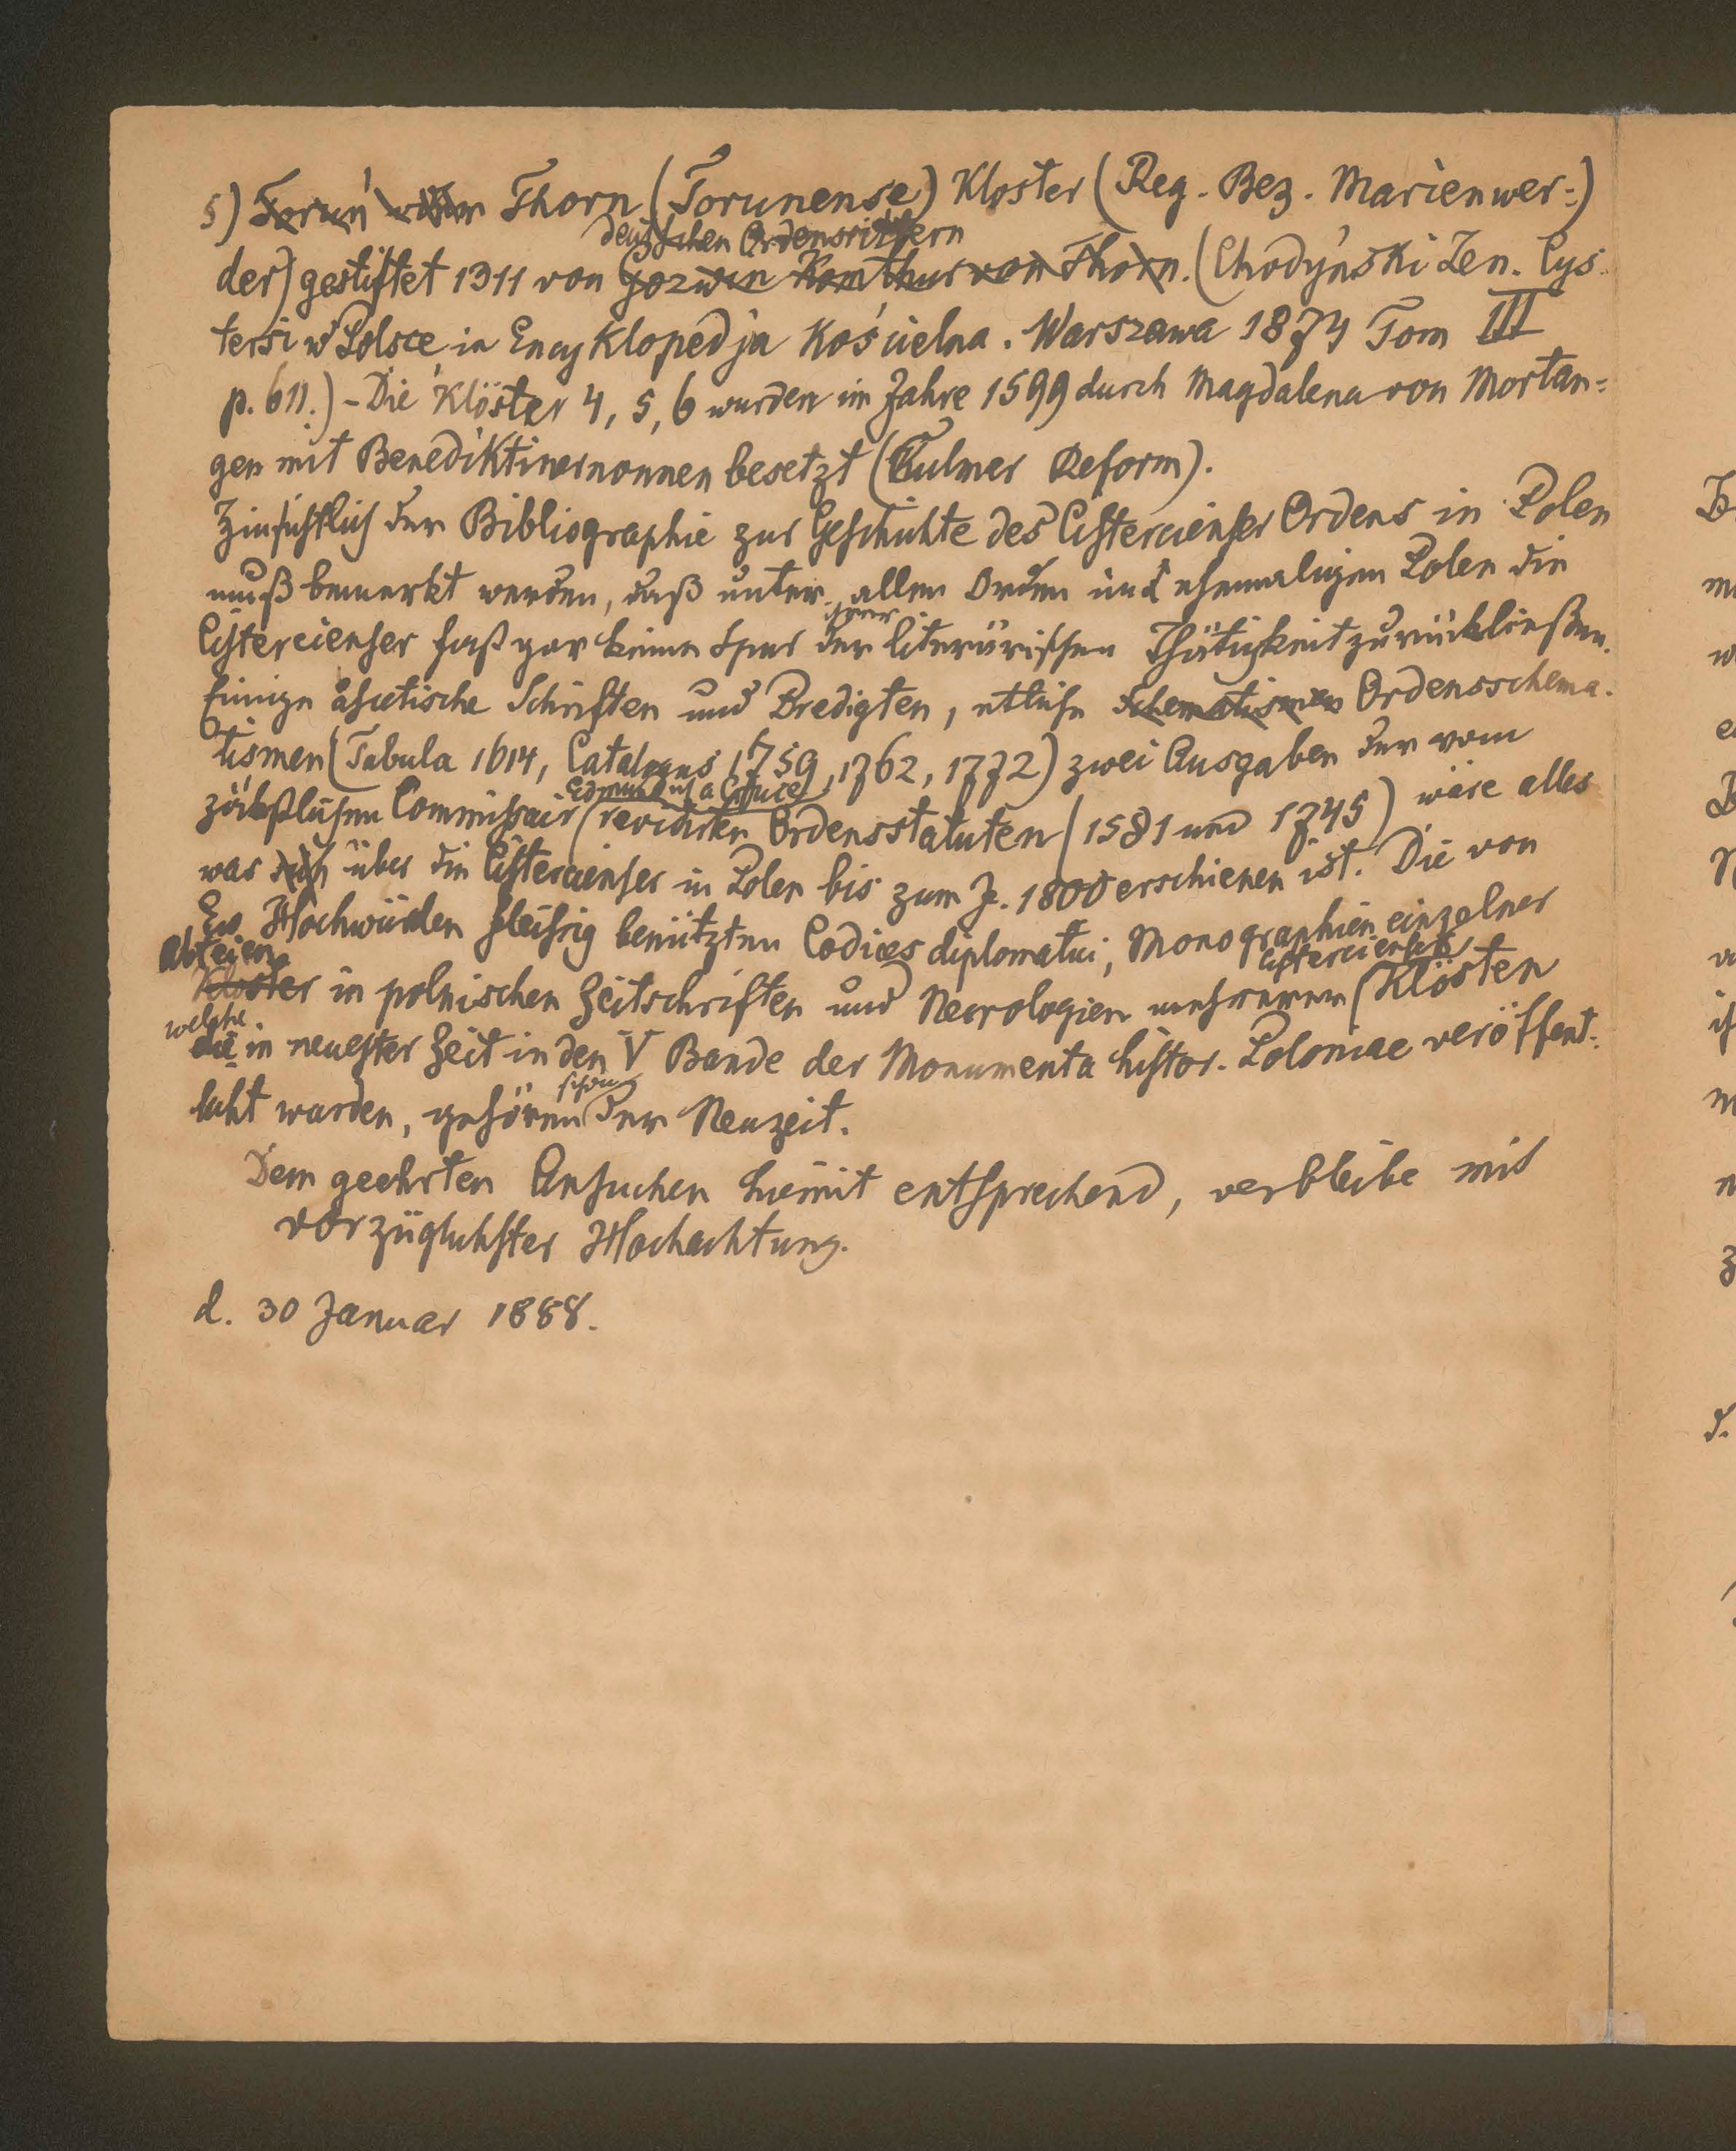 5) Toruń oder Thorn (Torunense) Kloster (Reg. Bez. Marienwer=)
deutschen Ordensrittern
der) gestiftet 1311 von Gozwin Komthur von Thorn. (Chodyński Zen. Cys-
tersi w Polsce in Encyklopedja Kościelna. Warszawa 1874 Tom III
p. 611.) - Die Klöster 4, 5, 6 wurden im Jahre 1599 durch Magdalena von Mortan=
gen mit Benediktinernonnen besetzt (Culmer Reform).
Hinsichtlich der Bibliographie zur Geschichte des Cistercienser Ordens in Polen
muß bemerkt werden, daß unter allen Orden im ehemaligen Polen die
ihrer
Cistercienser fast gar keine Spur der literärischen Thätigkeit zurückließen.
Einige ascetische Schriften und Predigten, etliche Schematismen Ordensschema-
tismen (Tabula 1614, Catalogus 1759, 1762, 1772) zwei Ausgaben der vom
Edmundus a Cruce
päbstlichen Commissair revidirten Ordensstatuten (1581 und 1745) wäre alles
was sich über die Cistercienser in Polen bis zum J. 1800 erschienen ist. Die von
Ew. Hochwürden fleißig benützten Codices diplomatici, Monographien einzelner
Abteien
cistercienser
Klöster in polnischen Zeitschriften und Necrologien mehrerer Klöster
welche
die in neuester Zeit in den V Bande der Monumenta histor. Poloniae veröffent-
schon
licht wurden, gehören der Neuzeit.
Dem geehrten Ansuchen hiemit entsprechend, verbleibe mit
vorzüglichster Hochachtung.
d. 30 Januar 1888.